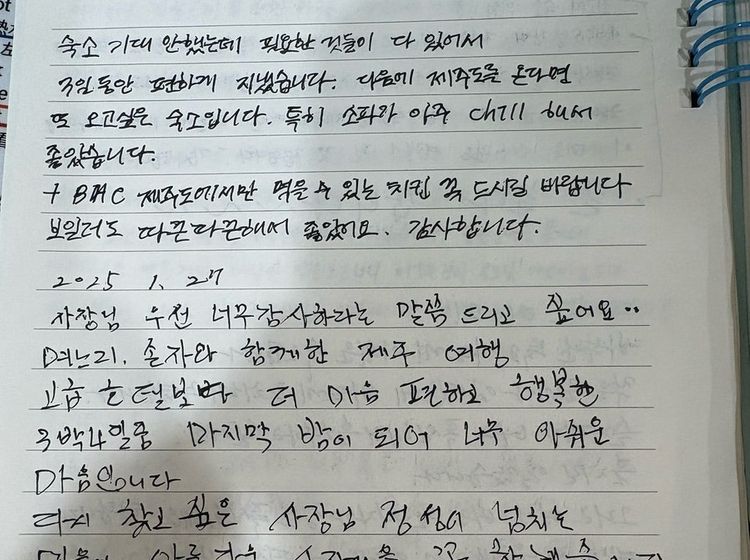 숙소 기대 안했는데 필요한 것들이 다 있어서
3일동안 편하게 지냈습니다. 다음에 제주도를 온다면
또 오고싶은 숙소입니다. 특히 소파가 아주 chill 해서
좋았습니다.
+ BHC 제주도에서만 먹을 수 있는 치킨 꼭 드시길 바랍니다
보일러도 따끈따끈해서 좋았어요. 감사합니다.
2025 1. 27
사장님 우선 너무감사하라는 말쯤 드리고 싶어요..
며느리. 손자와 함께한 제주 여행
고급 호텔보다 더 마음 편하고 행복한
3박4일쯤 마지막 밤이 되어 너무 아쉬운
마음입니다
다시 찾고 싶은 사장님 정성이 넘치는